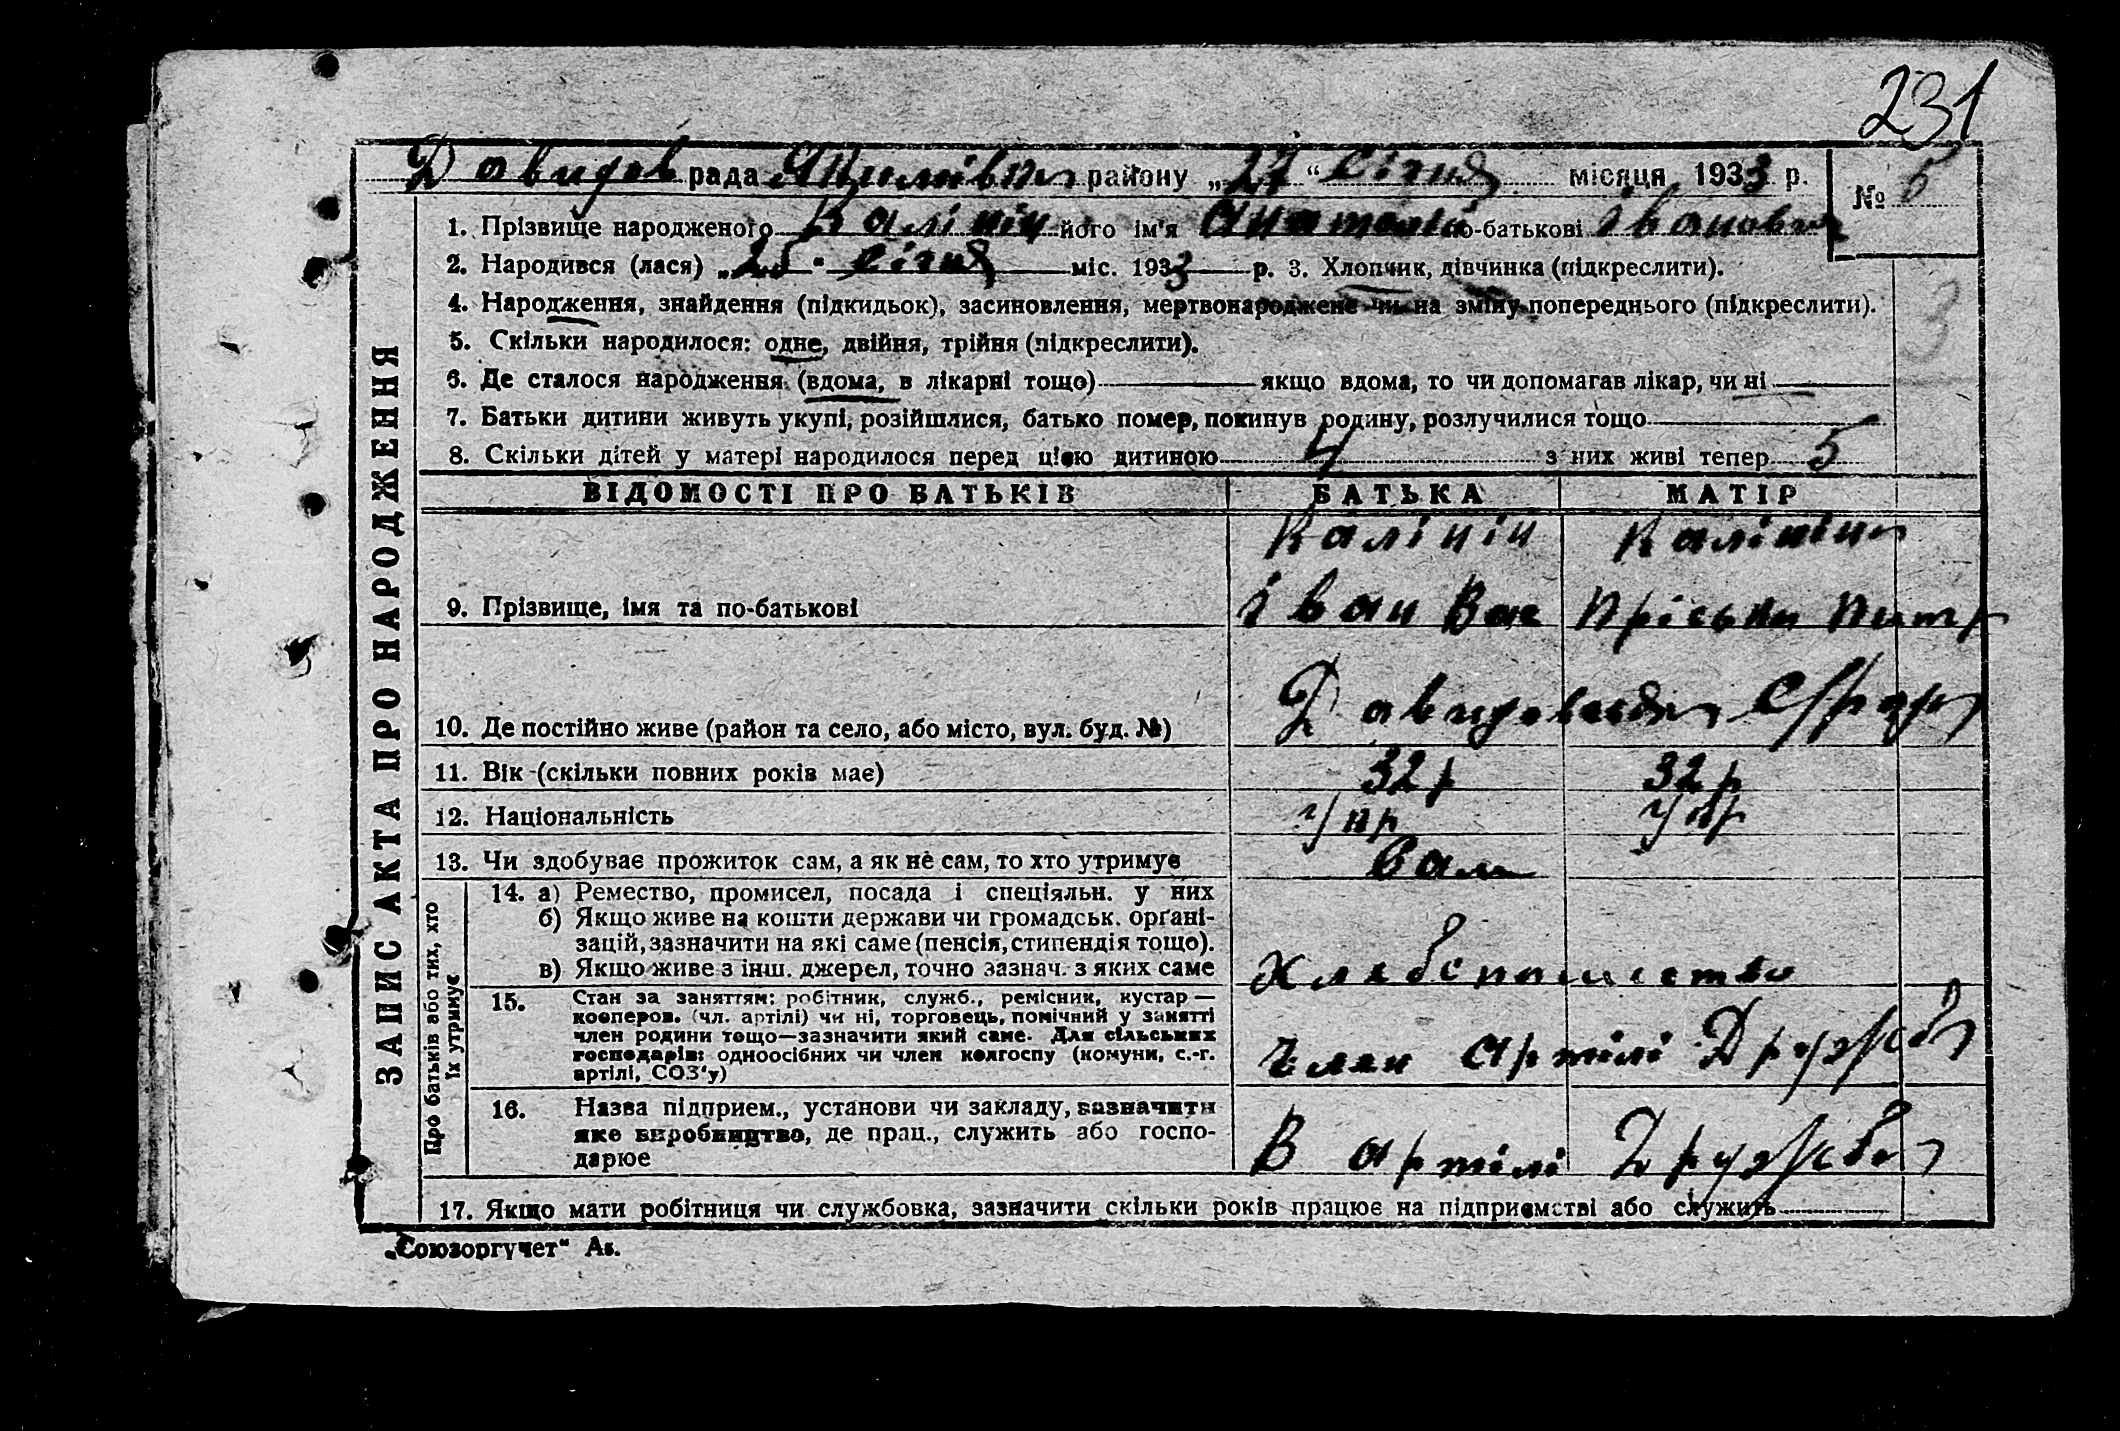 231
Давидов рада Якимівськ району „27“ Січня місяця 1933 р.
№ 5
1. Прізвище народженого Калінін його ім'я Анатолій по-батькові Івановіч
2. Народився (лася) „25“ Січня міс. 1933 р. 3. Хлопчик, дівчинка (підкреслити).
4. Народження, знайдення (підкидьок), засиновлення, мертвонароджене чи на зміну попереднього (підкреслити).
3
5. Скільки народилося: одне, двійня, трійня (підкреслити).
6. Де сталося народження (вдома, в лікарні тощо) якщо вдома, то чи допомагав лікар, чи ні
7. Батьки дитини живуть укупі, розійшлися, батько помер, покинув родину, розлучилися тощо
8. Скільки дітей у матері народилося перед цією дитиною 4 з них живі тепер 5
ВІДОМОСТІ ПРО БАТЬКІВ БАТЬКА МАТІР
Калінін Калініна
9. Прізвище, імя та по-батькові Іван Вас Пріська Питр
10. Де постійно живе (район та село, або місто, вул. буд. №)
11. Вік (скільки повних років має) 32 р 32 р
12. Національність Укр Укр
13. Чи здобуває прожиток сам, а як не сам, то хто утримує Сам
14. а) Ремество, промисел, посада і спеціяльн. у них
б) Якщо живе на кошти держави чи громадськ. орґані-
зацій, зазначити на які саме (пенсія, стипендія тощо).
в) Якщо живе з інш. джерел, точно зазнач. з яких саме
15. Стан за заняттям: робітник, служб., ремісник, кустар —
кооперов. (чл. артілі) чи ні, торговець, помічний у занятті
член родини тощо—зазначити який саме. Для сільських
господарів: одноосібних чи член колгоспу (комуни, с.-г.
артілі, СОЗ'у)
Член Артілі Дружба
16. Назва підприєм., установи чи закладу, зазначити
яке виробництво, де прац., служить або госпо-
дарює
В артілі Дружба
17. Якщо мати робітниця чи службовка, зазначити скільки років працює на підприємстві або служить
ЗАПИС АКТА ПРО НАРОДЖЕННЯ
Про батьків або тих, хто
їх утримує
„Союзоргучет“ Аз.